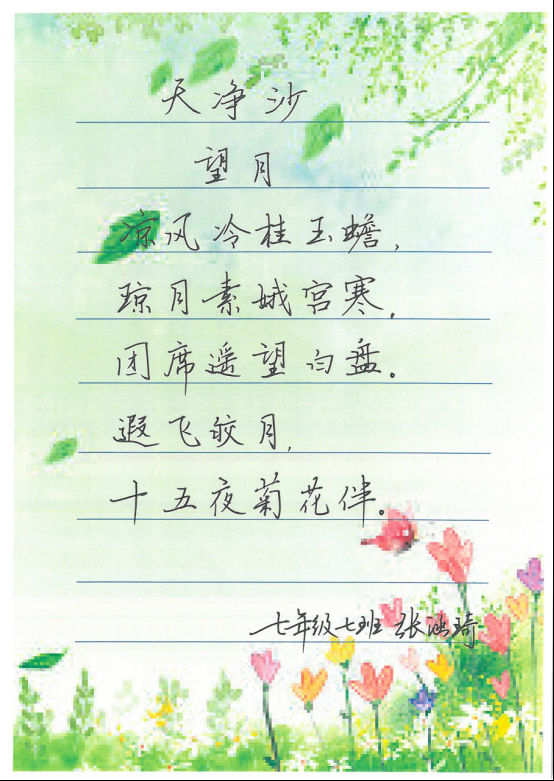 天净沙
望月
凉风冷桂玉蟾,
琼月素娥宫寒,
团席遥望白盘。
遐飞皎月,
十五夜菊花伴。
七年级七班 张涵琦